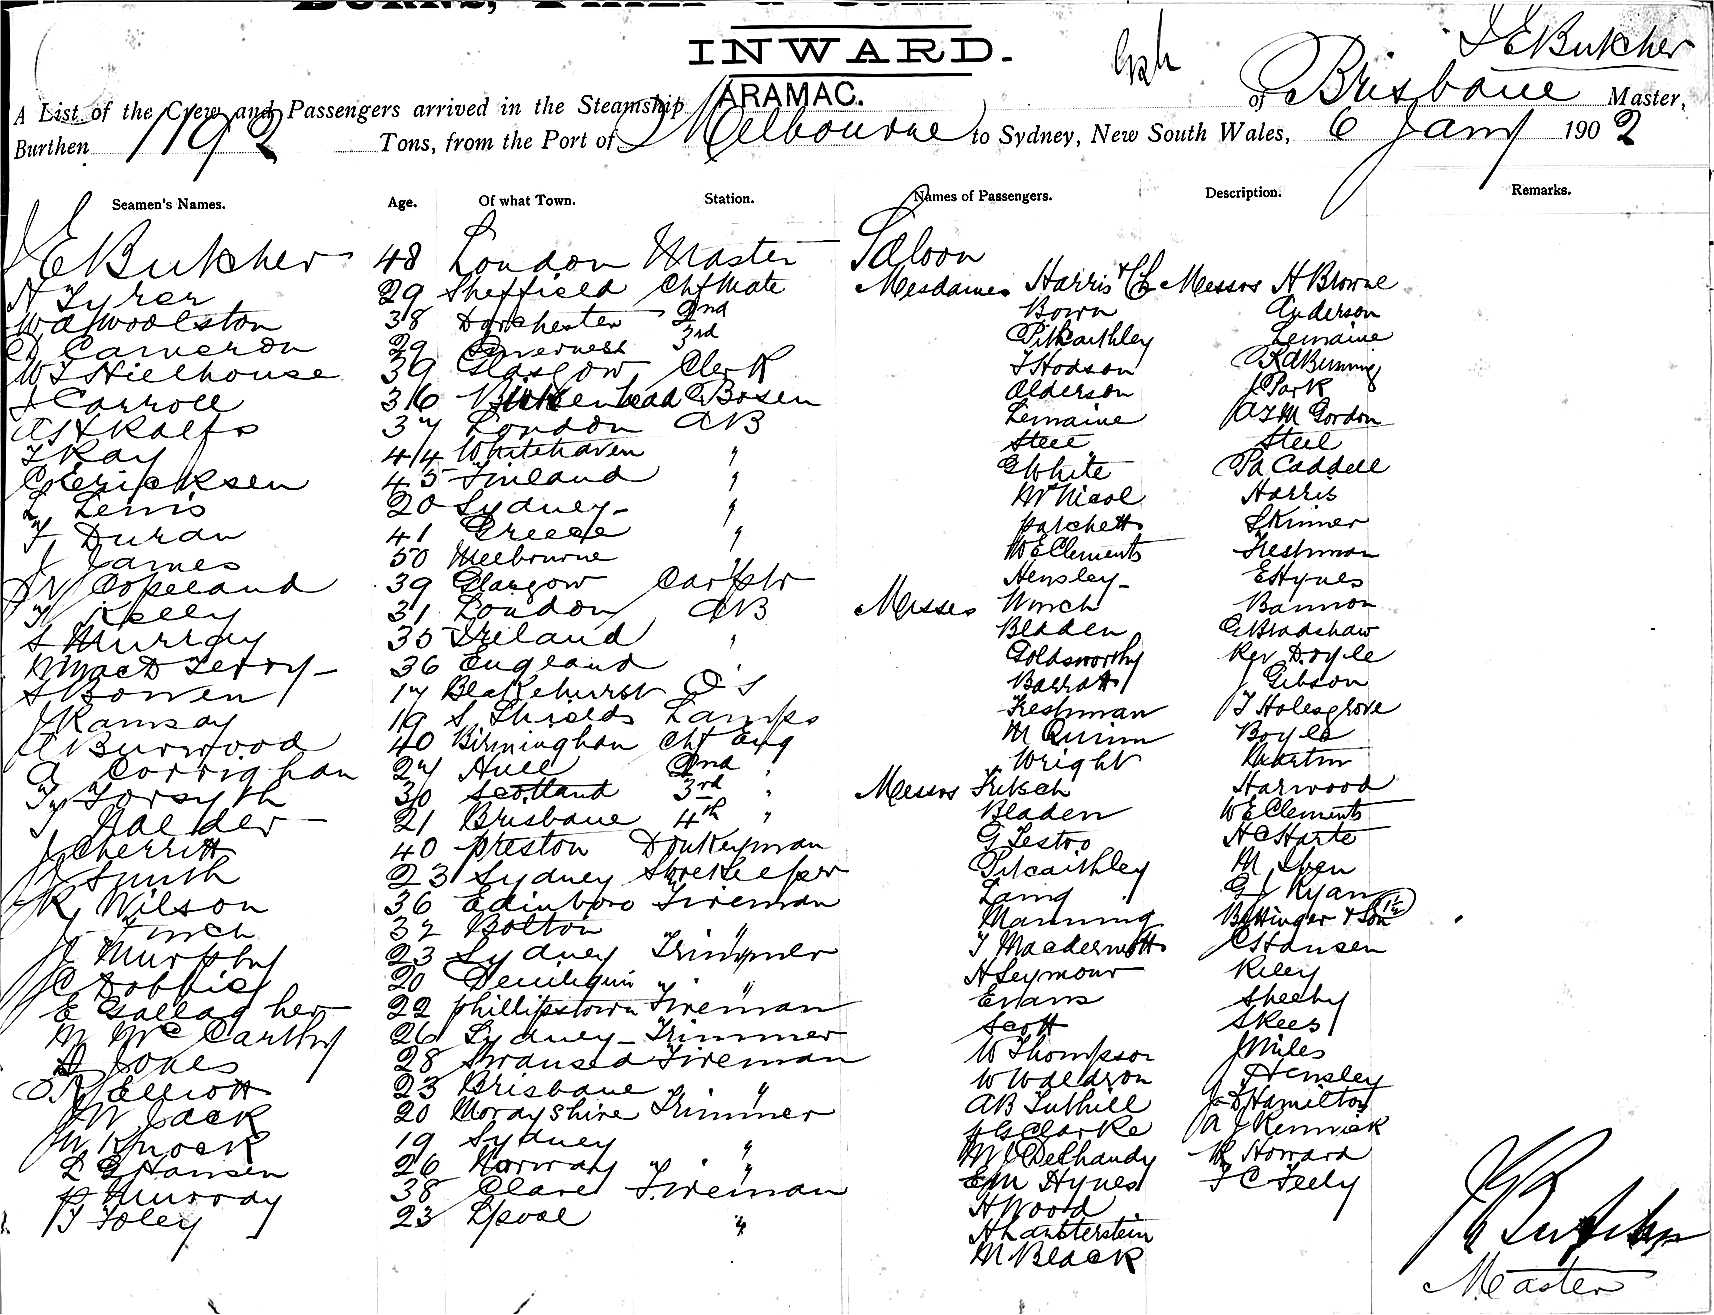 INWARD.
J E Butcher
A List of the Crew and Passengers arrived in the Steamship ARAMAC. of Brisbane Master,
Burthen 1192 Tons, from the Port of Melbourne to Sydney, New South Wales, 6 Jany 1902
Seamen's Names. Age. Of what Town. Station. Names of Passengers. Description. Remarks.
J E Butcher 48 London Master Saloon
H Tyrer 29 Sheffield Chf Mate Mesdames Harris & Ch Messrs H Browne
W A Woolston 38 Dorchester 2nd Bown Anderson
D Cameron 29 Inverness 3rd Pitkaithley Lemaine
W J Hielhouse 39 Glasgow Clerk J Hodson R A Binning
J Carroll 36 Birkenhead Bosen Alderson J Park
A H Ralfs 37 London AB Lemaine A J M Gordon
J Kay 44 Whitehaven " Steel Steel
C Ericksen 45 Finland " G White Caddell
L Lewis 20 Sydney " McNicol Harris
F Duran 41 Greece " Patchett Skinner
J James 50 Melbourne W E Clements Freshman
W Copeland 39 Glasgow Carptr Hensley E Hynes
H Kelly 31 London AB Misses Winch Bannon
S Murray 35 Ireland " Bladen G Bradshaw
W MacD Terry 36 England " Goldsworthy Rev Doyle
S Bowen 17 Blakehurst OS Barratt J Gibson
J Ramsay 19 S Shields Lamps Freshman J Holesgrove
A Burwood 40 Birmingham Chf Eng M Quinn Boyle
A Corrighan 27 Hull 2nd " Wright Martin
T Forsyth 30 Scotland 3rd " Messrs Fritsch Harwood
J Calder 21 Brisbane 4th " Bladen W E Clements
J Cherritt 40 Preston Donkeyman G Testro H C Harte
J Smith 23 Sydney Storekeeper Pitcaithley M Iven
R Wilson 36 Edinboro Fireman Laing G J Ryan
J Finch 32 Bolton " Manning Bettinger & Son 1½
J Murphy 23 Sydney Trimmer J Macdermott C Hansen
C Dobbie 20 Deniliquin " " H Seymour Riley
E Gallagher 22 Phillipstown Fireman Evans Sheehy
M McCarthy 26 Sydney Trimmer Scott Skees
D Jones 28 Swansea Fireman W Thompson J Miles
O R Elliott 23 Brisbane " W Waldron J Hensley
J W Jack 20 Morayshire Trimmer A B Tuthill J D Hamilton
W Knock 19 Sydney " J G Clarke A J Rennick
L G Hansen 26 Norway " " " M C Delhandy R Howard
P Murray 38 Clare Fireman E M Hynes J C Feely
J Foley 23 Lpool " H Wood
M Black
J E Butcher
Master